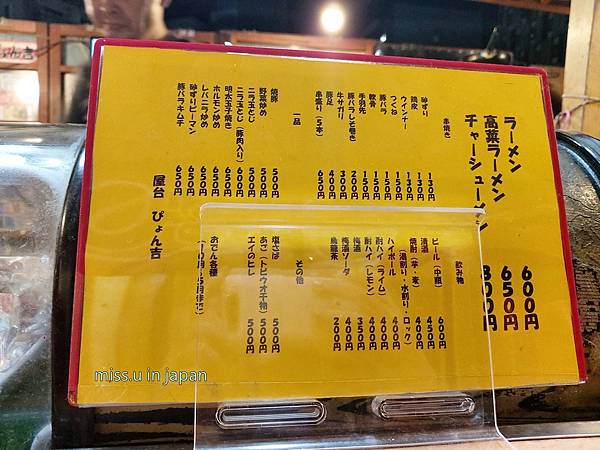 ラーメン 600円
高菜ラーメン 650円
チャーシューメン 800円
串焼き
砂ずり 130円
鶏皮 130円
ウインナー 130円
つくね 130円
豚バラ 150円
軟骨 150円
手羽先 150円
豚バラしそ巻き 200円
牛サガリ 300円
豚足 400円
串盛り(5本) 650円
一品
焼豚 500円
野菜炒め 500円
ニラ玉とじ 500円
ニラ玉とじ(豚肉入り) 600円
明太玉子焼き 650円
ホルモン炒め 650円
レバニラ炒め 650円
砂ずりピーマン 650円
豚バラキムチ 650円
飲み物
ビール(中瓶) 600円
清酒 450円
焼酎(芋・麦) 400円
(湯割り・水割り・ロック)
ハイボール 400円
酎ハイ(ライム) 400円
酎ハイ(レモン) 400円
梅酒 350円
梅酒ソーダ 400円
烏龍茶 200円
その他
塩さば 500円
あご(トビウオ干物) 500円
エイのヒレ 500円
おでん各種
屋台 ぴょん吉
miss.u in japan